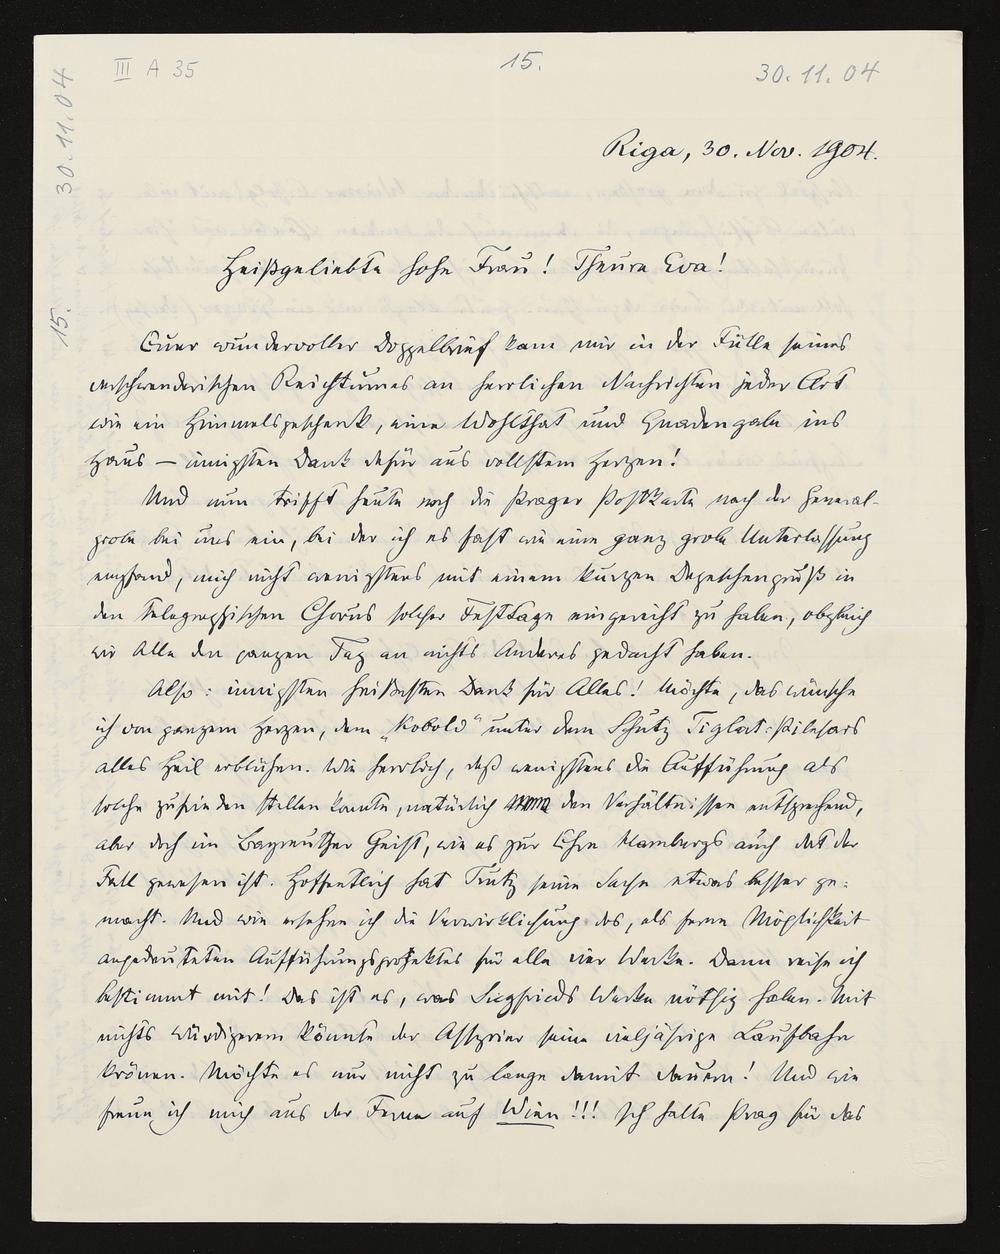 III A 35
15.
30. 11. 04
30. 11. 04
15.
Riga, 30. Nov. 1904.
Heißgeliebte hohe Frau! Theure Eva!
Euer wundervoller Doppelbrief kam mir in der Fülle seines
verschwenderischen Reichtumes an herrlichen Nachrichten jeder Art
wie ein Himmelsgeschenk, eine Wohlthat und Gnadengabe ins
Haus — innigsten Dank dafür aus vollstem Herzen!
Und nun trifft heute noch die Prager Postkarte nach der General-
probe bei uns ein, bei der ich es fast wie eine ganz grobe Unterlassung
empfand, mich nicht wenigstens mit einem kurzen Depeschengruß in
den telegraphischen Chorus solcher Festtage eingereiht zu haben, obgleich
wir Alle den ganzen Tag an nichts Anderes gedacht haben.
Also: innigsten heißesten Dank für Alles! Möchte, das wünsche
ich von ganzem Herzen, dem „Kobold" unter dem Schutz Tiglat-Pilesars
alles Heil erblühen. Wie herrlich, daß wenigstens die Aufführung als
solche zufrieden stellen konnte, natürlich den Verhältnissen entsprechend,
aber doch im Bayreuther Geist, wie es zur Ehre Hamburgs auch dort der
Fall gewesen ist. Hoffentlich hat Trutz seine Sache etwas besser ge-
macht. Und wie ersehne ich die Verwirklichung des, als ferne Möglichkeit
angedeuteten Aufführungsprojektes für alle vier Werke. Dann reise ich
bestimmt mit! Das ist es, was Siegfrieds Werke nöthig haben. Mit
nichts würdigerem könnte der Assyrier seine vieljährige Laufbahn
krönen. Möchte es nur nicht zu lange damit dauern! Und wie
freue ich mich aus der Ferne auf Wien!!! Ich halte Prag für das